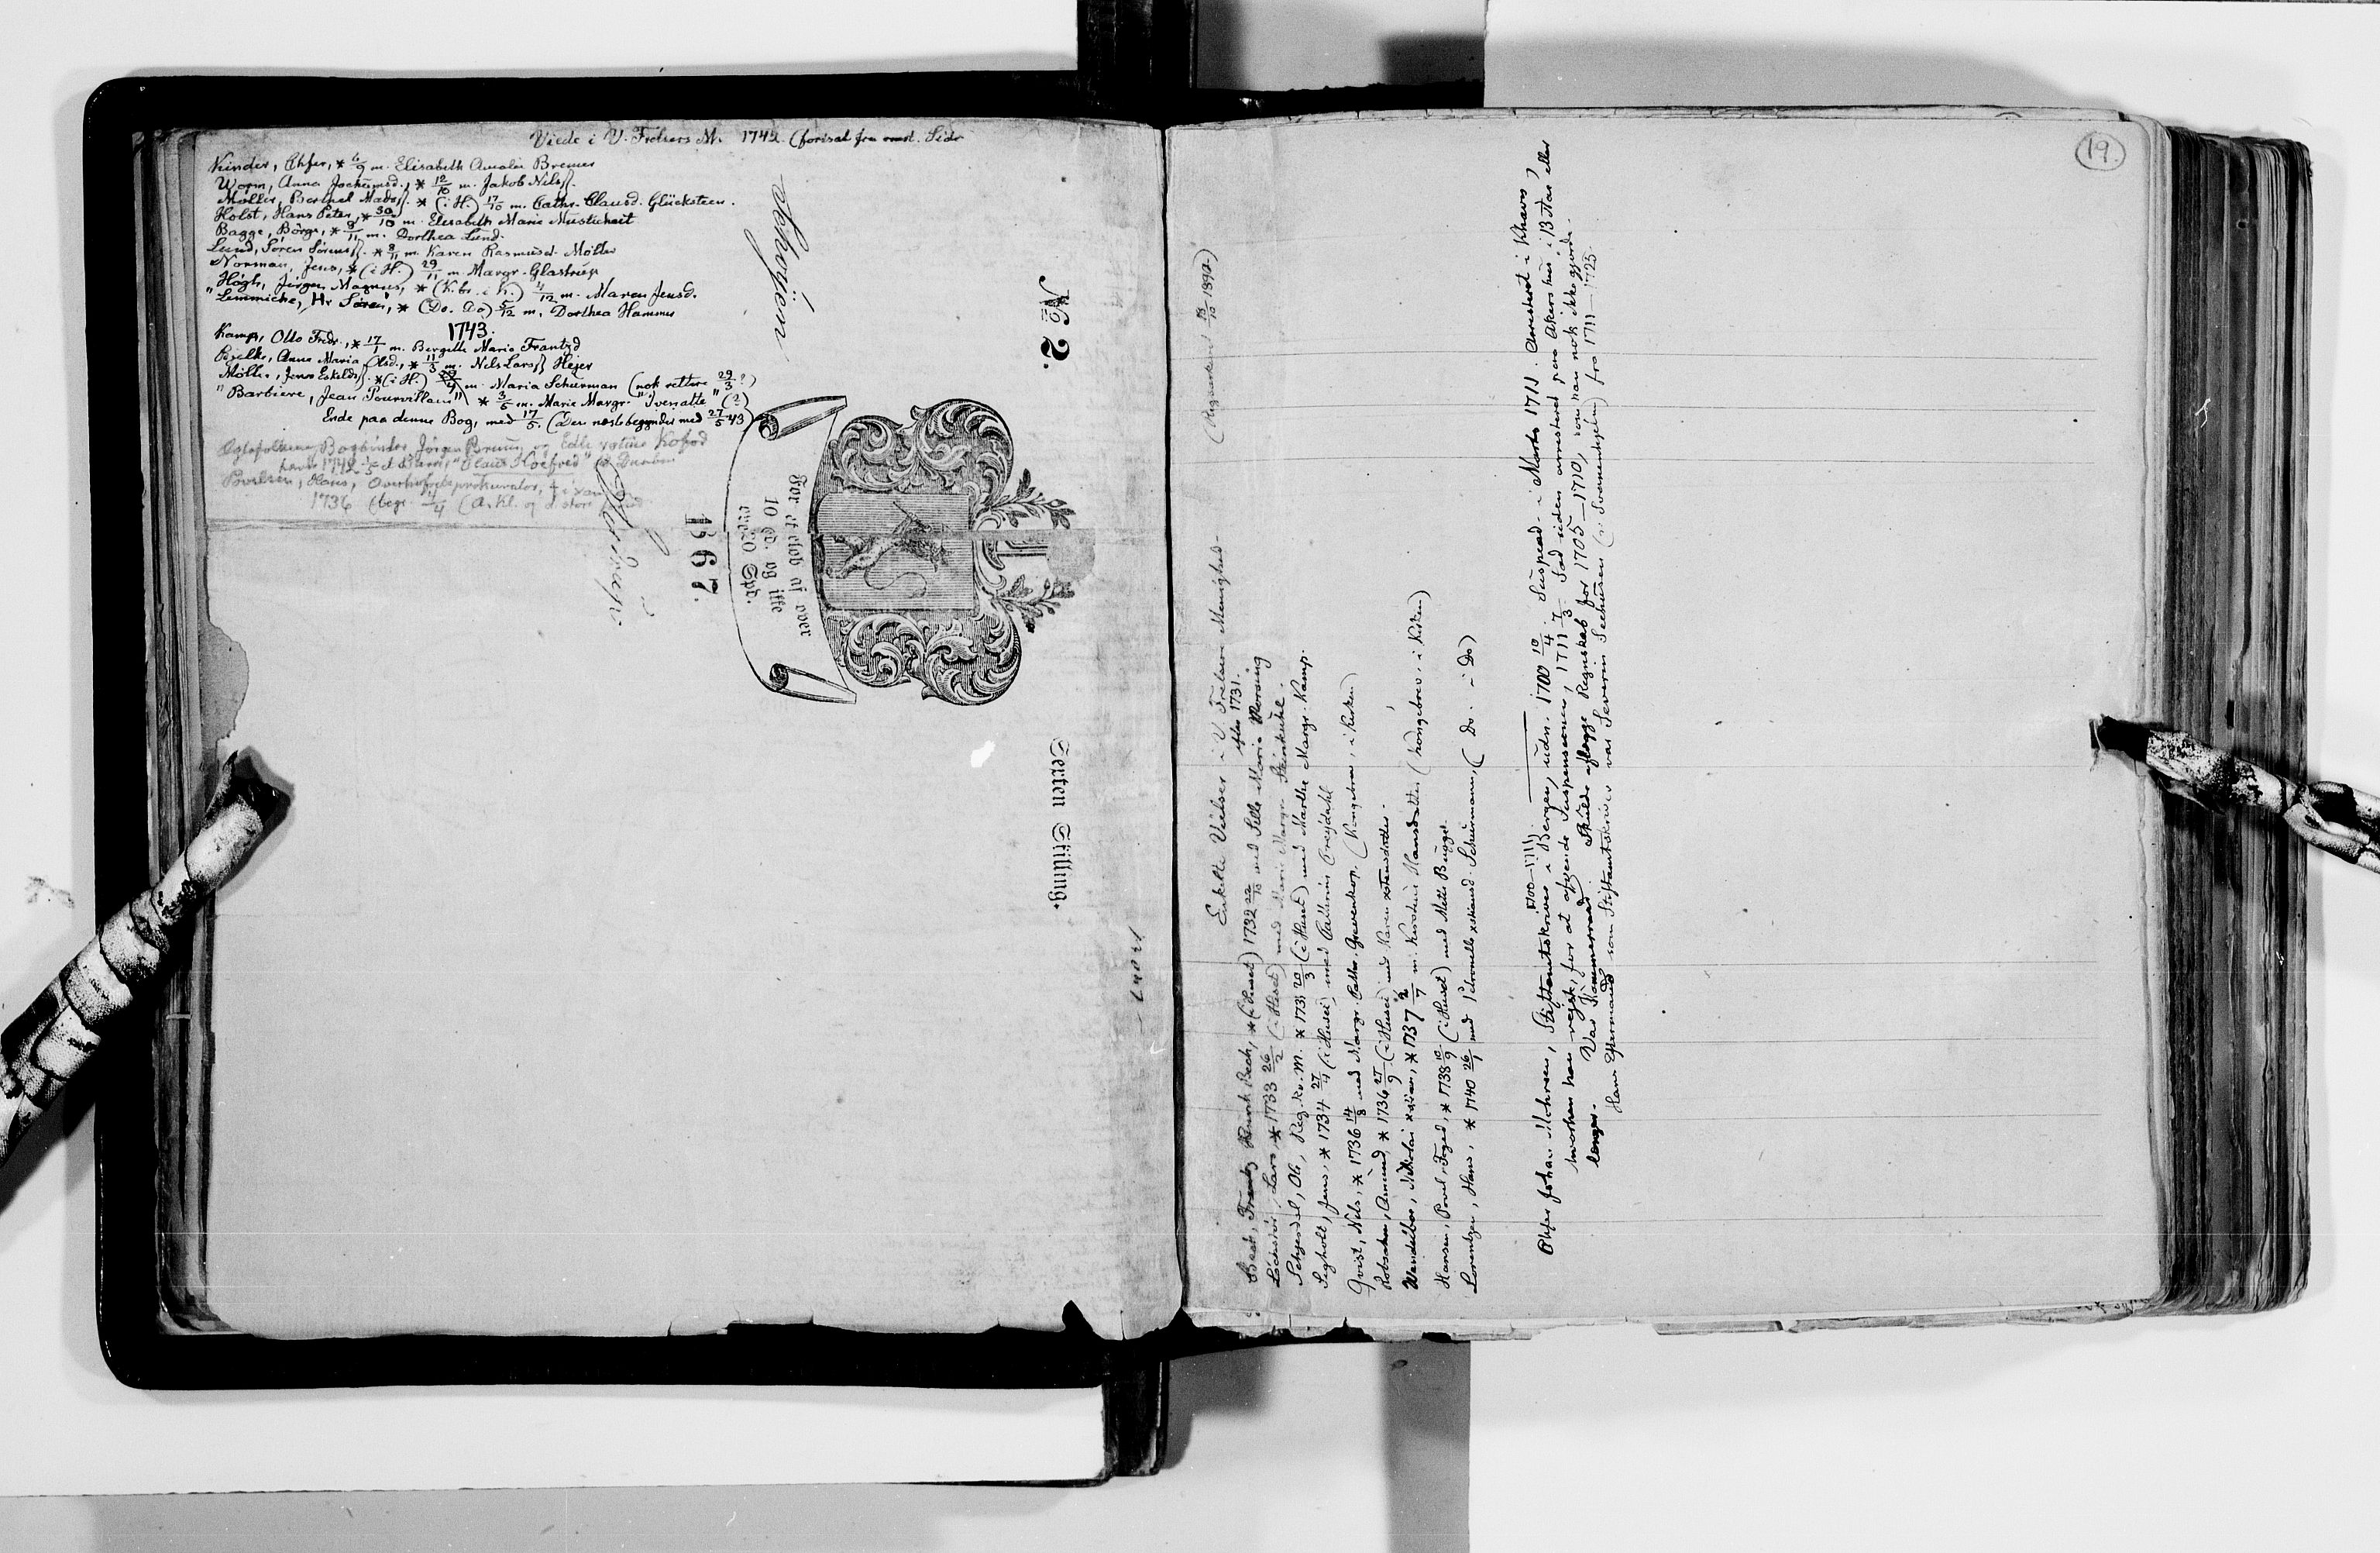 Viede i V. Frelsers M. 1742. (fortsat fra modst. Side
Kinder, Chfer, * 6/9 m. Elisabeth Amalie Bremer
Worm, Anna Jochumsd., * 12/10 m. Jakob Nilsſ.
Møller, Bertel Madsſ. * (i H.) 17/10 m. Cathr. Clausd. Glücksteen.
Holst, Hans Peter, * 30/10 m. Elisabeth Marie
Bagge, Börge, * 8/11 m. Dorthea Lund.
Lund, Søren Sørensſ. * 8/11 m. Karen Rasmusd. Møller
Norman, Jens, * (i H.) 29/11 m. Margr. Glastrup
" Høgh, Jørgen Magnus, * (K.br. i K.) 4/12 m. Maren Jensd.
" Lemmiche, Hr Søren, * (Do. Do) 5/12 m. Dorthea Hammer
1743.
Kamp, Otto Fredr., * 17/1 m. Bergitte Marie Frantzd
Bielke, Anna Maria Olsd., * 11/3 m. Nils Larsſ Hejer
Mölle, Jens Eskildsſ. * (i H.) m. Maria Schurman (nok rettere 29/3?)
" Barbiere, Jean Tourvillaus" * 3/5 m. Marie Margr. "Ivenatte" (?)
Ende paa denne Bog, med 17/5. (Den næste begynder med 27/5 43)
Ægtefolkene Bogbinder Jørgen Bruun og Edle Kofod
havde 1742 et Barn, "Claus Koefoed"
Povelsen, Hans, Overhofretsprokurator,
1736 (begr. 4/4 (A. Kl. og d. store
No 2.
For et Beløb af over
10 Spd. og ikke
over 20 Spd.
1867.
Sexten Skilling.
19.
Enkelte Vielser i V. Frelsers Menighed. (Regnskaber 15/10 1892)
efter 1731.
Beck, Frantz Beck, * (i Huset) 1732 22/10 med Sille Marie
Lars, * 1733 26/2 (i Huset) med Marie Margr. Steinkuhl.
Schjerdal, Ole, Reg.kv.M. * 1733 20/3 (i Huset) med Marthe Margr. Kamp.
Segholt, Jens, * 1734 27/4 (i Huset) med Cathrine Creydahl
Qvist, Nils, * 1736 14/8 med Margr. Cathr. Grevenkop. (Kongebrev, i Kirken)
Robsahm, Amund, * 1736 27/9 (i Huset) med Karen xstensdatter.
Wendelboe, Nikolai xstian, * 1737 2/7 m. Kirstine Hansdatter (Kongebrev. i Kirken)
Hansen, Povel, Foged, * 1738 10/9 (i Huset) med Mette Bugge.
Lorentzen, Hans, * 1740 26/1 med Petronelle xstiansd. Schurmann, (Do. i Do)
1700–1711
Chfer Johan Mohrsen, Stiftamtskriver i Bergen, udn. 1700 10/4. Suspend. i Marts 1711. Arresteret i Khavn,
hvorhen han rejste for at afgjøre Suspensionen, 1711 7/3. Sad siden arresteret paa Akershus i 13 Aar eller
længer. Var Kammerraad. Skulde aflægge Regnskab for 1705–1710, som han nok ikke gjorde.
Hans Eftermand som Stiftamtskriver var Severin Seehusen (ɔ: Svanenhjelm) fra 1711–1725.